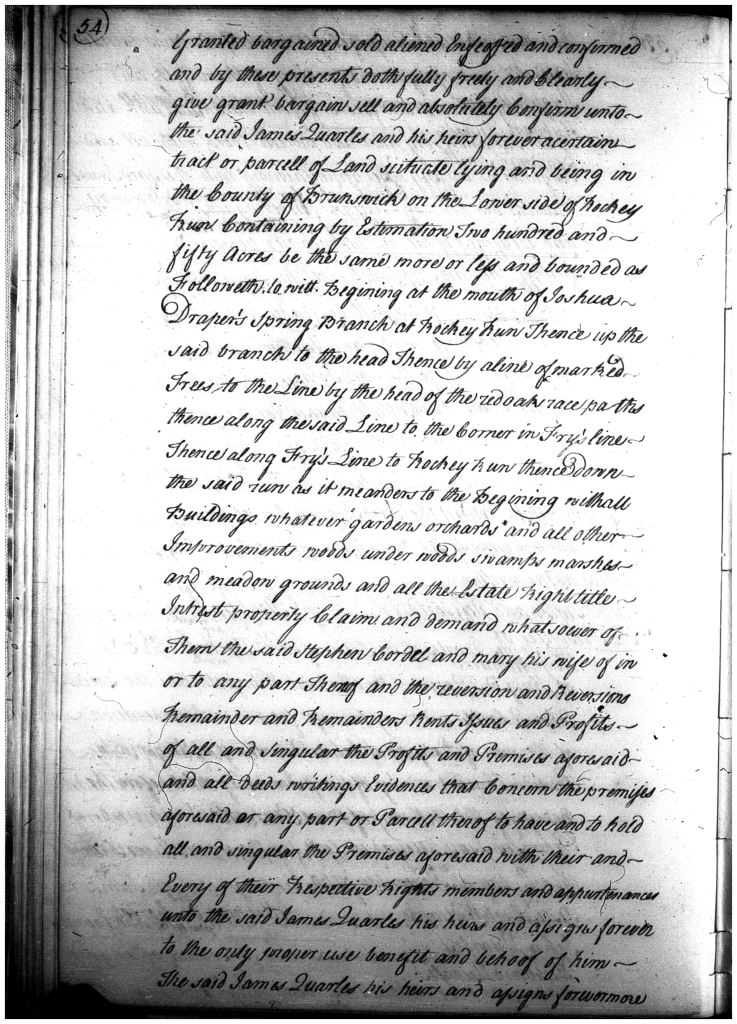 54
Granted bargained sold aliened Enfeoffed and confirmed
and by these presents doth fully freely and Clearly
give grant bargain sell and absolutely Confirm unto
the said James Quarles and his heirs forever a certain
tract or parcell of Land scituate lying and being in
the County of Brunswick on the Lower side of Rockey
Run Containing by Estimation Two hundred and
fifty Acres be the same more or less and bounded as
Followeth. to witt. Begining at the mouth of Joshua
Draper's Spring Branch at Rockey Run Thence up the
said branch to the head Thence by a line of marked
Trees to the Line by the head of the red oak race paths
thence along the said Line to the Corner in Fry's line
Thence along Fry's Line to Rockey Run thence Down
the said run as it meanders to the Begining with all
Buildings whatever gardens orchards and all other
Improvements woods under woods swamps marshes
and meadow grounds and all the Estate Right title
Intrest property Claim and demand whatsoever of
Them the said Stephen Cordel and mary his wife of in
or to any part Therof and the reversion and Reversions
Remainder and Remainders Rents Issues and Profits
of all and singular the Profits and Premises aforesaid
and all Deeds writings Evidences that Concern the premises
aforesaid or any part or Parcell therof to have and to hold
all and singular the Premises aforesaid with their and
Every of their Respective Rights members and appurtenances
unto the said James Quarles his heirs and assigns forever
to the only proper use benefit and behoof of him
The said James Quarles his heirs and assigns forevermore